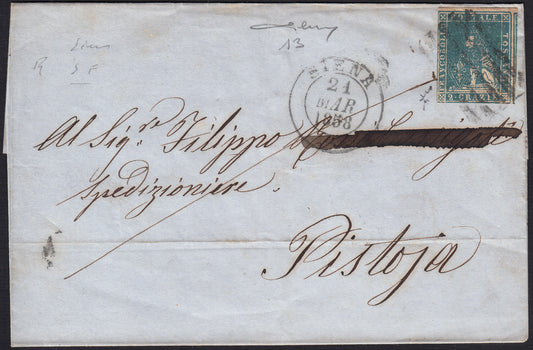 Siena
R S F
13
FRANCOBOLLO POSTALE TOSCANO
2 CRAZIE
SIENA
21
MAR
1858
Al Sig.re Filippo
Spedizioniere.
Pistoja